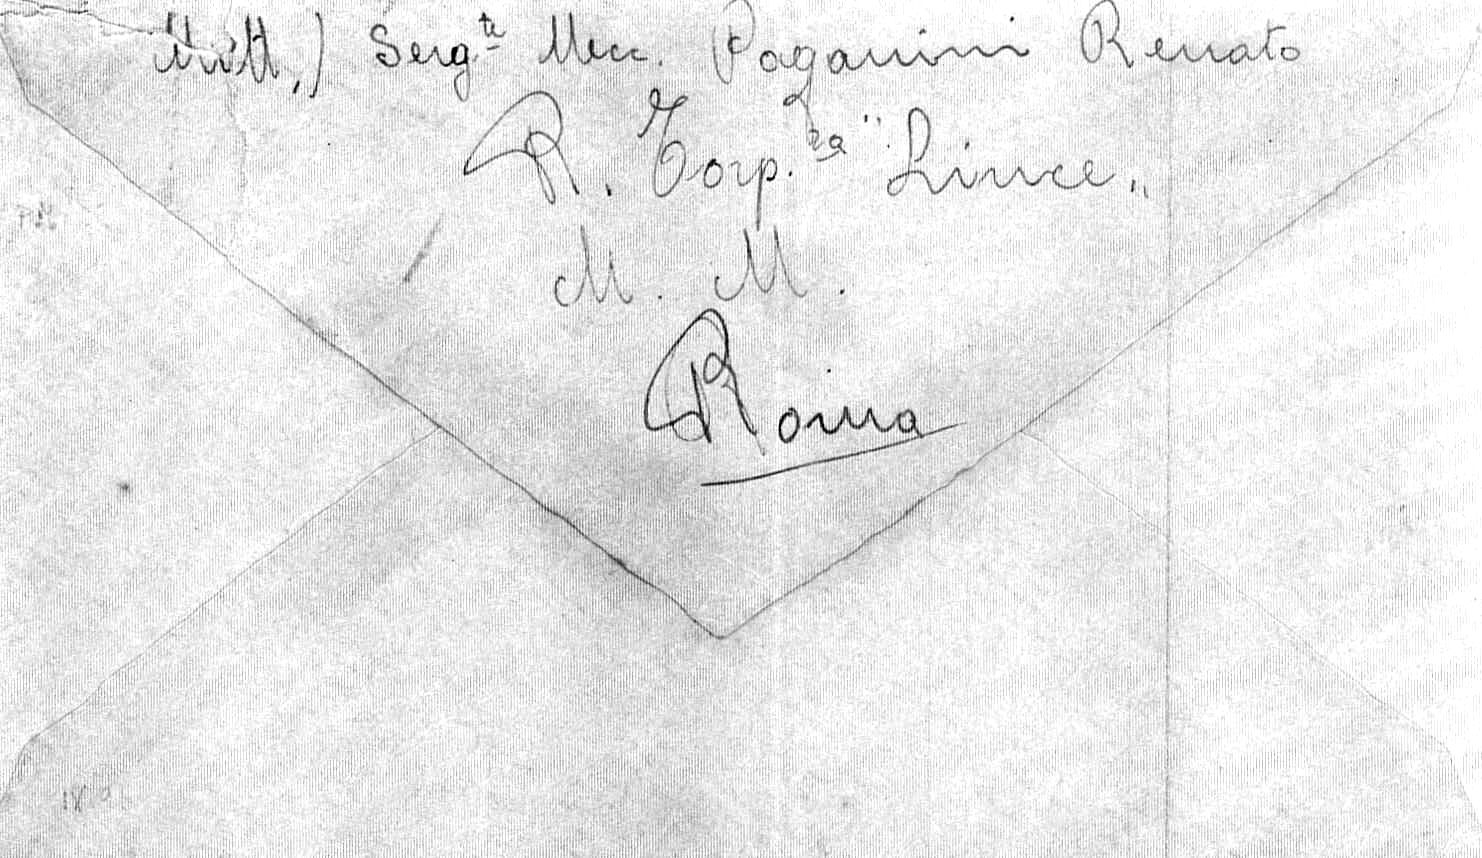 Mitt,) Serg.te Mecc. Paganini Renato
R. Torp.ra "Lince„
M. M.
Roma